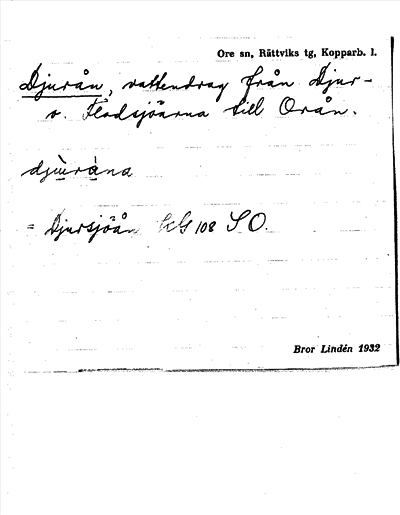 Ore sn, Rättviks tg, Kopparb. l.
Djurån, vattendrag från Djur-
o. Flodsjöarna till Orån.
djùrána
= Djursjöån 108 SO.
Bror Lindén 1932